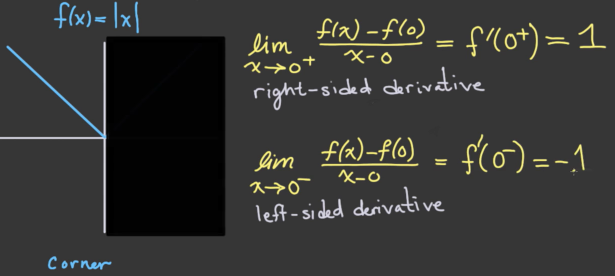 f(x) = |x|
lim x→0⁺ f(x) − f(0) / x − 0 = f'(0⁺) = 1
right-sided derivative
lim x→0⁻ f(x) − f(0) / x − 0 = f'(0⁻) = −1
left-sided derivative
Corner